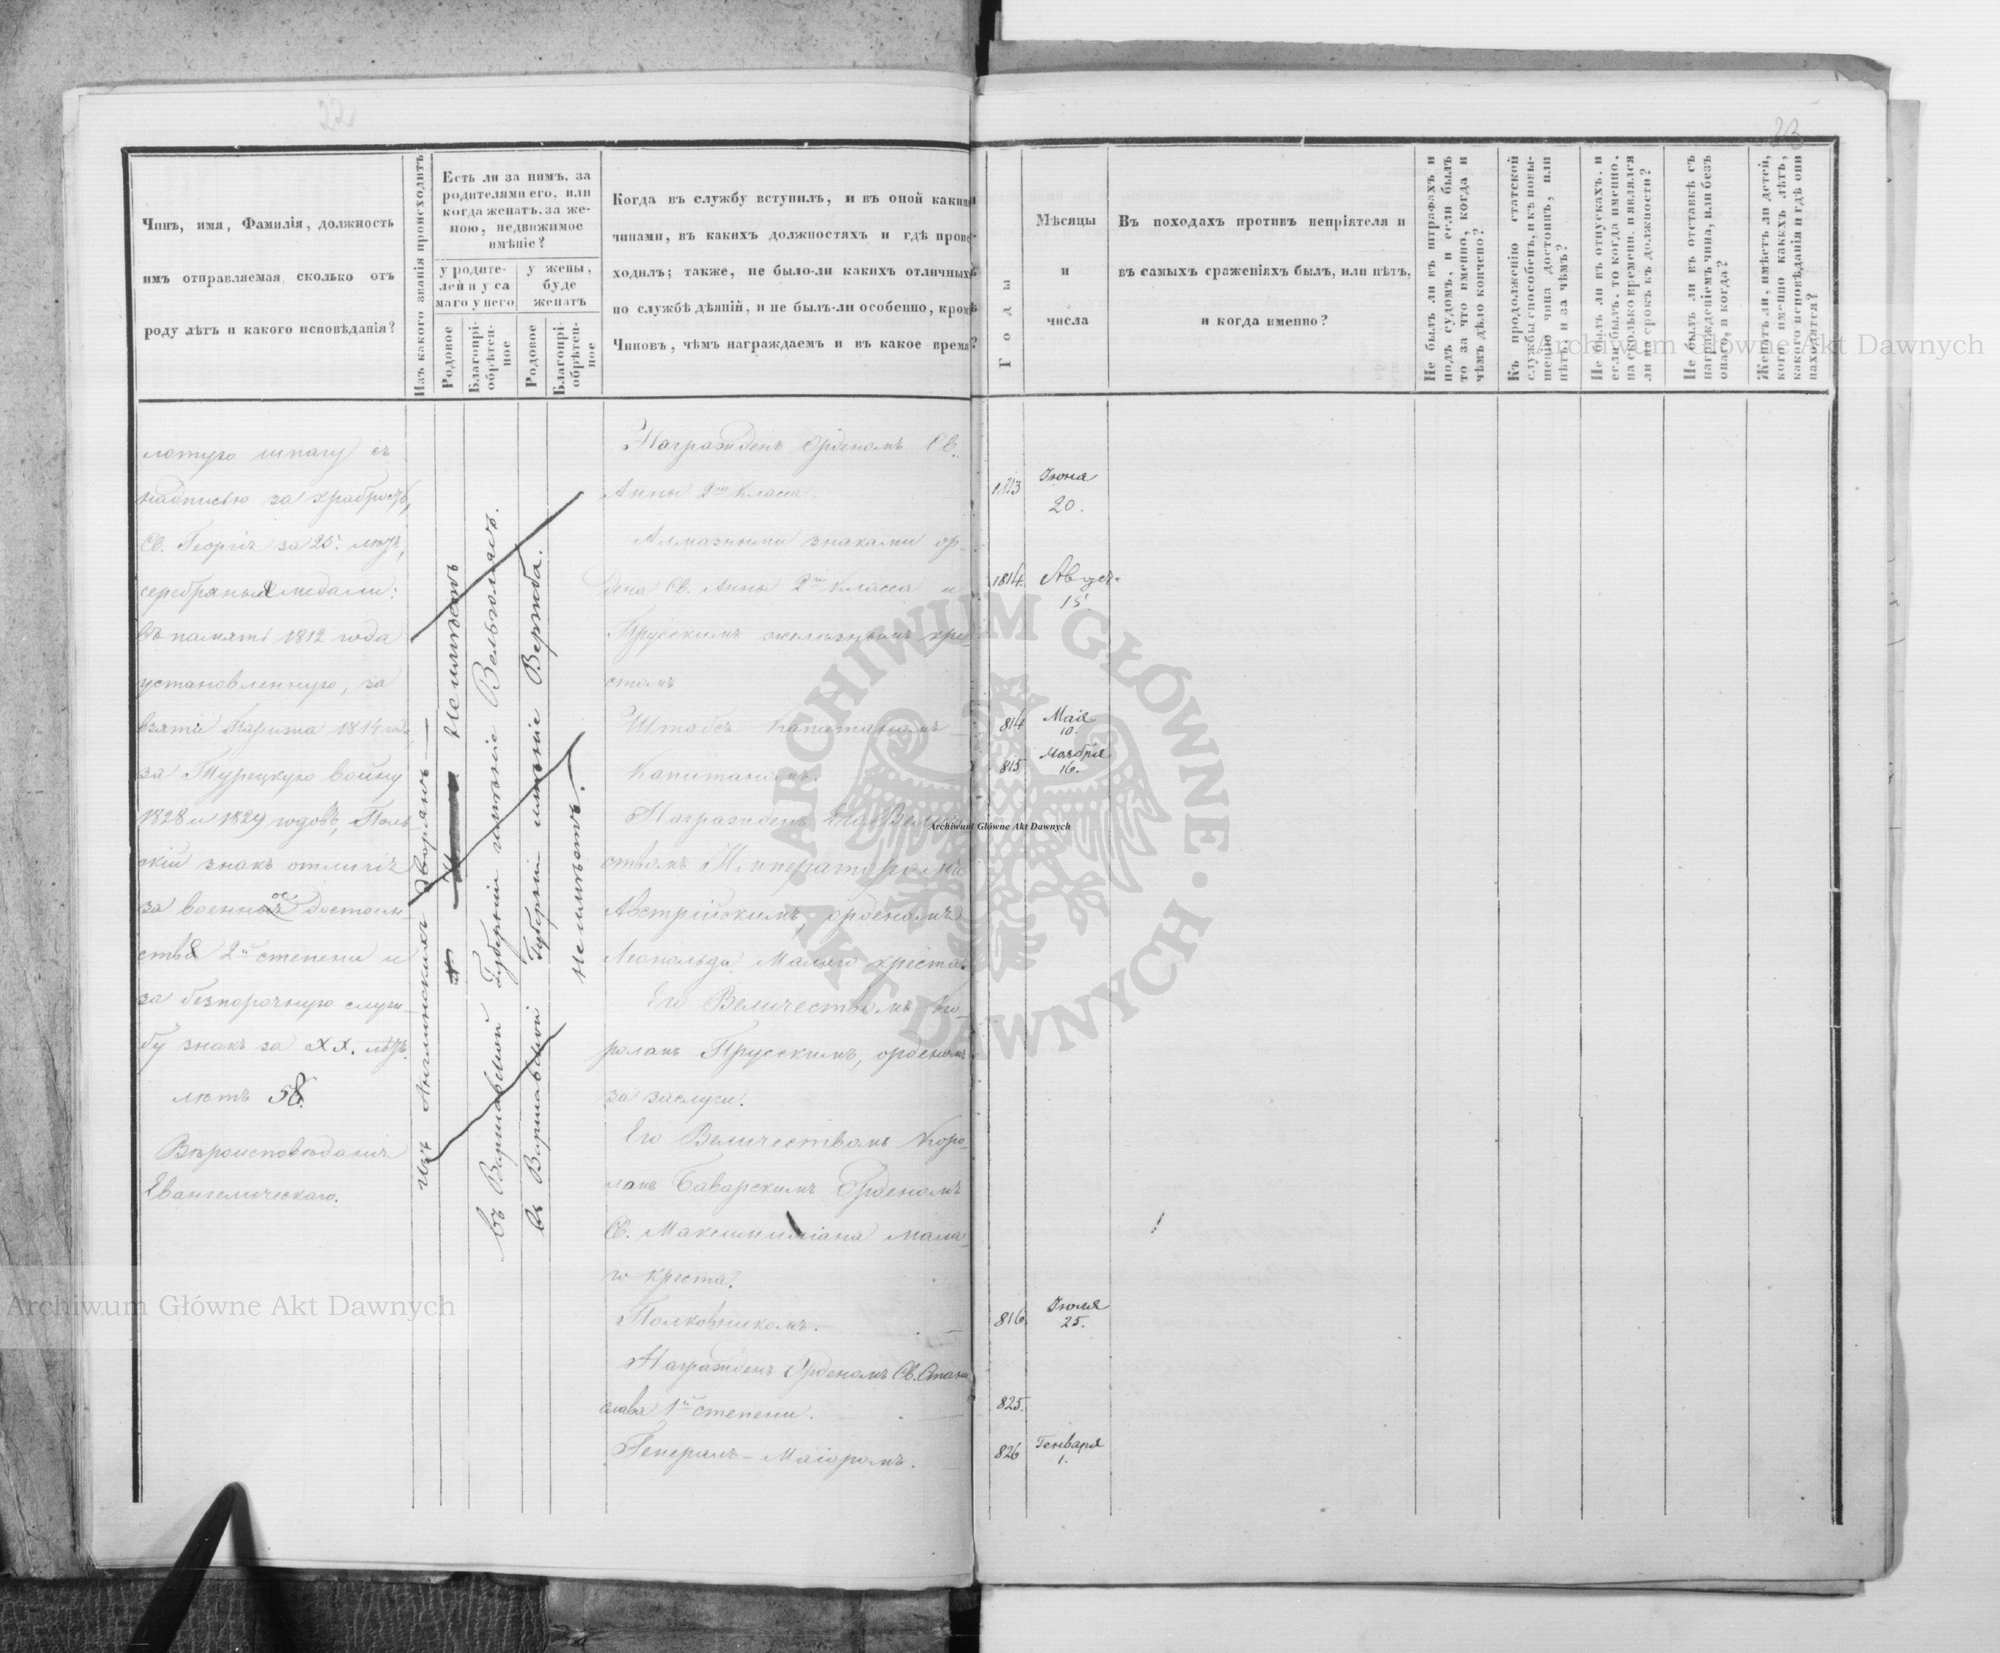 22
23
Чинъ, имя, Фамилія, должность
имъ отправляемая, сколько отъ
роду лѣтъ и какого исповѣданія?
Изъ какого званія происходитъ
Есть ли за нимъ, за
родителями его, или
когда женатъ, за же-
ною, недвижимое
имѣніе?
у родите-
лей и у са
маго у него
у жены,
буде
женатъ
Родовое
Благопрі-
обрѣтен-
ное
Родовое
Благопрі-
обрѣтен-
ное
Когда въ службу вступилъ, и въ оной какими
чинами, въ какихъ должностяхъ и гдѣ проис-
ходилъ; также, не было-ли какихъ отличныхъ
по службѣ дѣяній, и не былъ-ли особенно, кромѣ
Чиновъ, чѣмъ награждаемъ и въ какое время?
Годы
Мѣсяцы
и
числа
Въ походахъ противъ непріятеля и
въ самыхъ сраженіяхъ былъ, или нѣтъ,
и когда именно?
Не былъ ли въ штрафахъ и
подъ судомъ, и если былъ
то за что именно, когда и
чѣмъ дѣло кончено?
Къ продолженію статской
службы способенъ, и къ повы-
шенію чина достоинъ, или
нѣтъ и за чѣмъ?
Не былъ ли въ отпускахъ, и
если былъ, то когда именно,
на сколько времени, и явился
ли на срокъ къ должности?
Не былъ ли въ отставкѣ съ
награжденіемъ чина, или безъ
онаго, и когда?
Женатъ ли, имѣетъ ли дѣтей,
кого именно какихъ лѣтъ,
какого исповѣданія и гдѣ они
находятся?
лотую шпагу съ
надписью за храбрость,
Св. Георгія за 25. лѣтъ,
серебряныя медали:
въ память 1812 года
установленную, за
взятіе Парижа 1814 года,
за Турецкую войну
1828 и 1829 годовъ, Поль-
скій знакъ отличія
за военное достоин-
ство 2й степени и
за безпорочную служ-
бу знакъ за XX. лѣтъ.
лѣтъ
Вѣроисповѣданія
Евангелическаго.
Изъ Англинскихъ дворянъ
Не имѣетъ
въ Варшавской Губерніи имѣніе
въ Варшавской Губерніи имѣніе Вержба.
Не имѣетъ.
Награжденъ Орденомъ Св.
Анны 2го Класса.
1813 Іюня
20.
Алмазными знаками ор-
дена Св. Анны 2го Класса и
1814. Авгус.
15.
Прусскимъ желѣзнымъ кре-
стомъ
Штабсъ Капитаномъ
814 Маія
10.
Капитаномъ.
815 Ноября
16.
Награжденъ Его Величе-
ствомъ Императоромъ
Австрійскимъ, орденомъ
Леопольда Малаго креста.
Его Величествомъ Ко-
ролемъ Прусскимъ, орденомъ
за заслуги.
Его Величествомъ Коро-
лемъ Баварскимъ Орденомъ
Св. Максимиліана мала-
го креста.
Полковникомъ.
816.
25.
Награжденъ Орденомъ Св. Стани
слава 1й степени.
825.
Генералъ-Маіоромъ.
826 Генваря
1.
Archiwum Główne Akt Dawnych
Archiwum Główne Akt Dawnych
Archiwum Główne Akt Dawnych
ARCHIWUM GŁÓWNE · AKT DAWNYCH ·